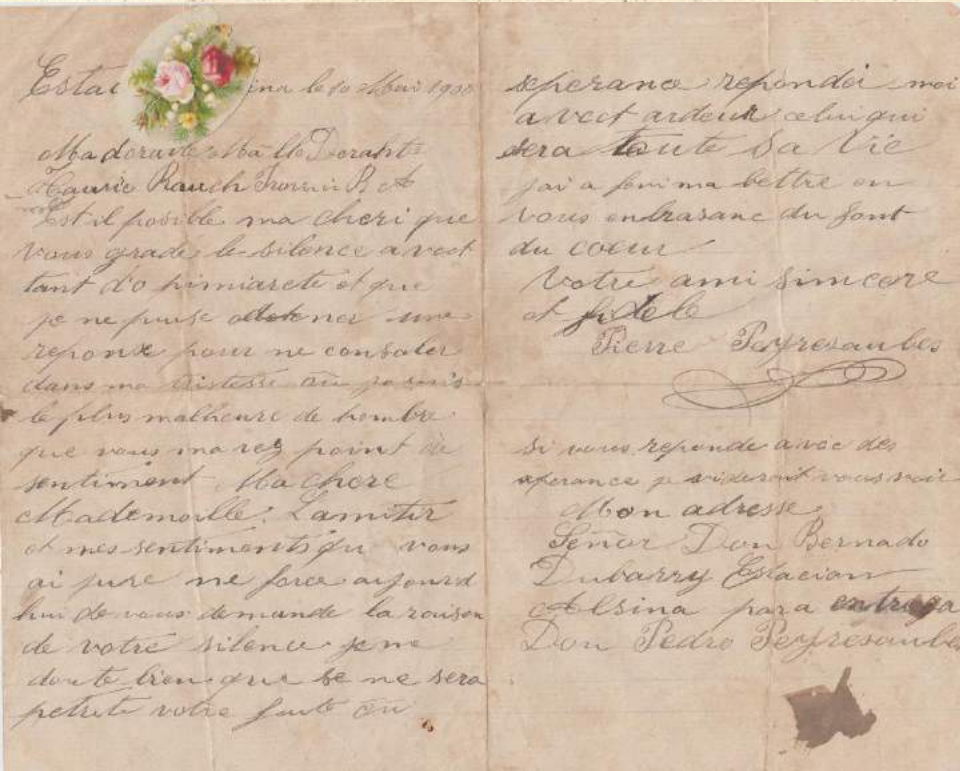 Esta ina le 10 Mai 1900
Ma
Rauch
Est il posible ma cheri que
vous grade le silence avect
tant d'o et que
je ne puise une
reponse pour me consoler
dans ma tristesse
le plus malheure de hombre
que vous mavez point de
sentiment Ma chere
Mademoille. Lamitir
et mes sentiments qu vous
ai jure me force aujourd
hui de vous demande la raison
de votre silence je me
doute bien que se ne sera
votre faute
esperance repondei moi
avect ardeur celui qui
sera toute sa vie
ma lettre en
vous enbrasanc du font
du coeur
Votre ami simcere
et fidele
Pierre Peyresaubes
si vous reponde avec des
esperance je vous voir
Mon adresse
Señor Don Bernado
Dubarry Estacion
Alsina para entraga
Don Pedro Peyresaubes